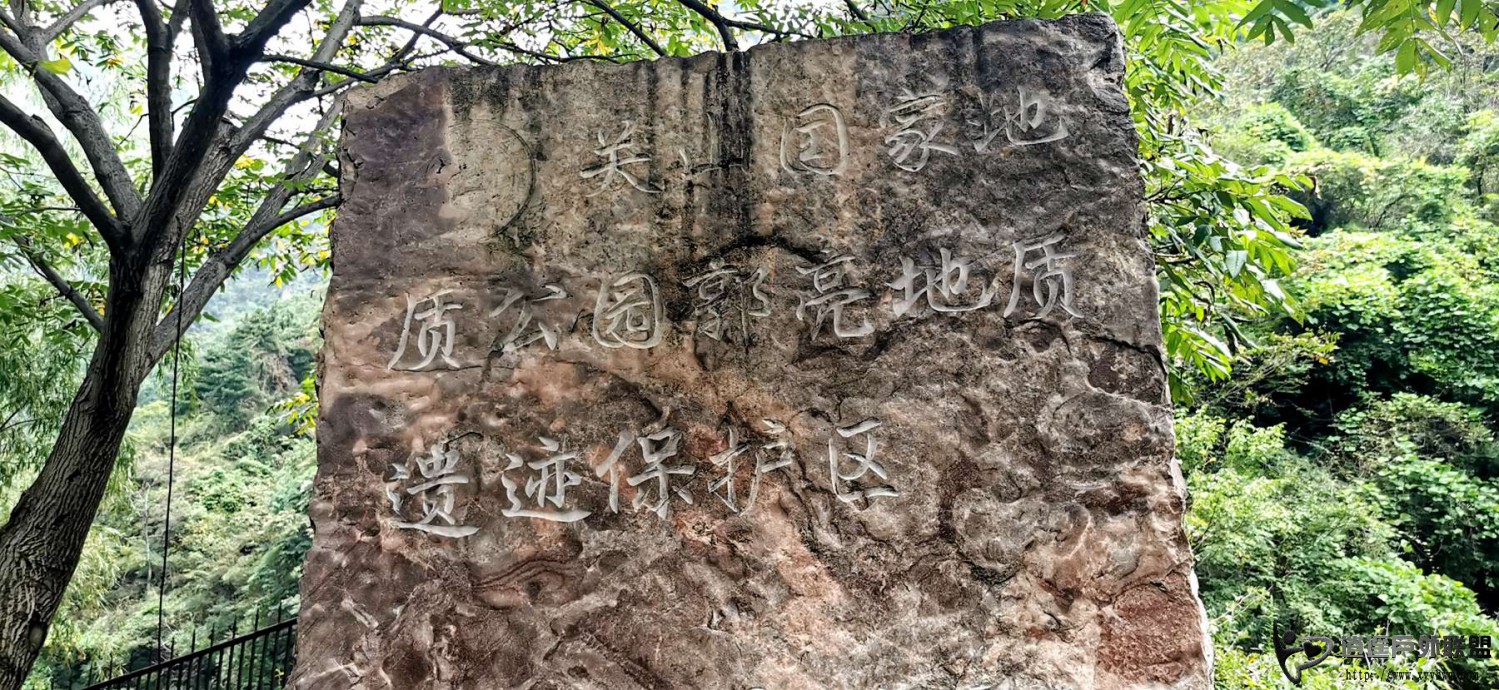 关山国家地
质公园郭亮地质
遗迹保护区
户外联盟